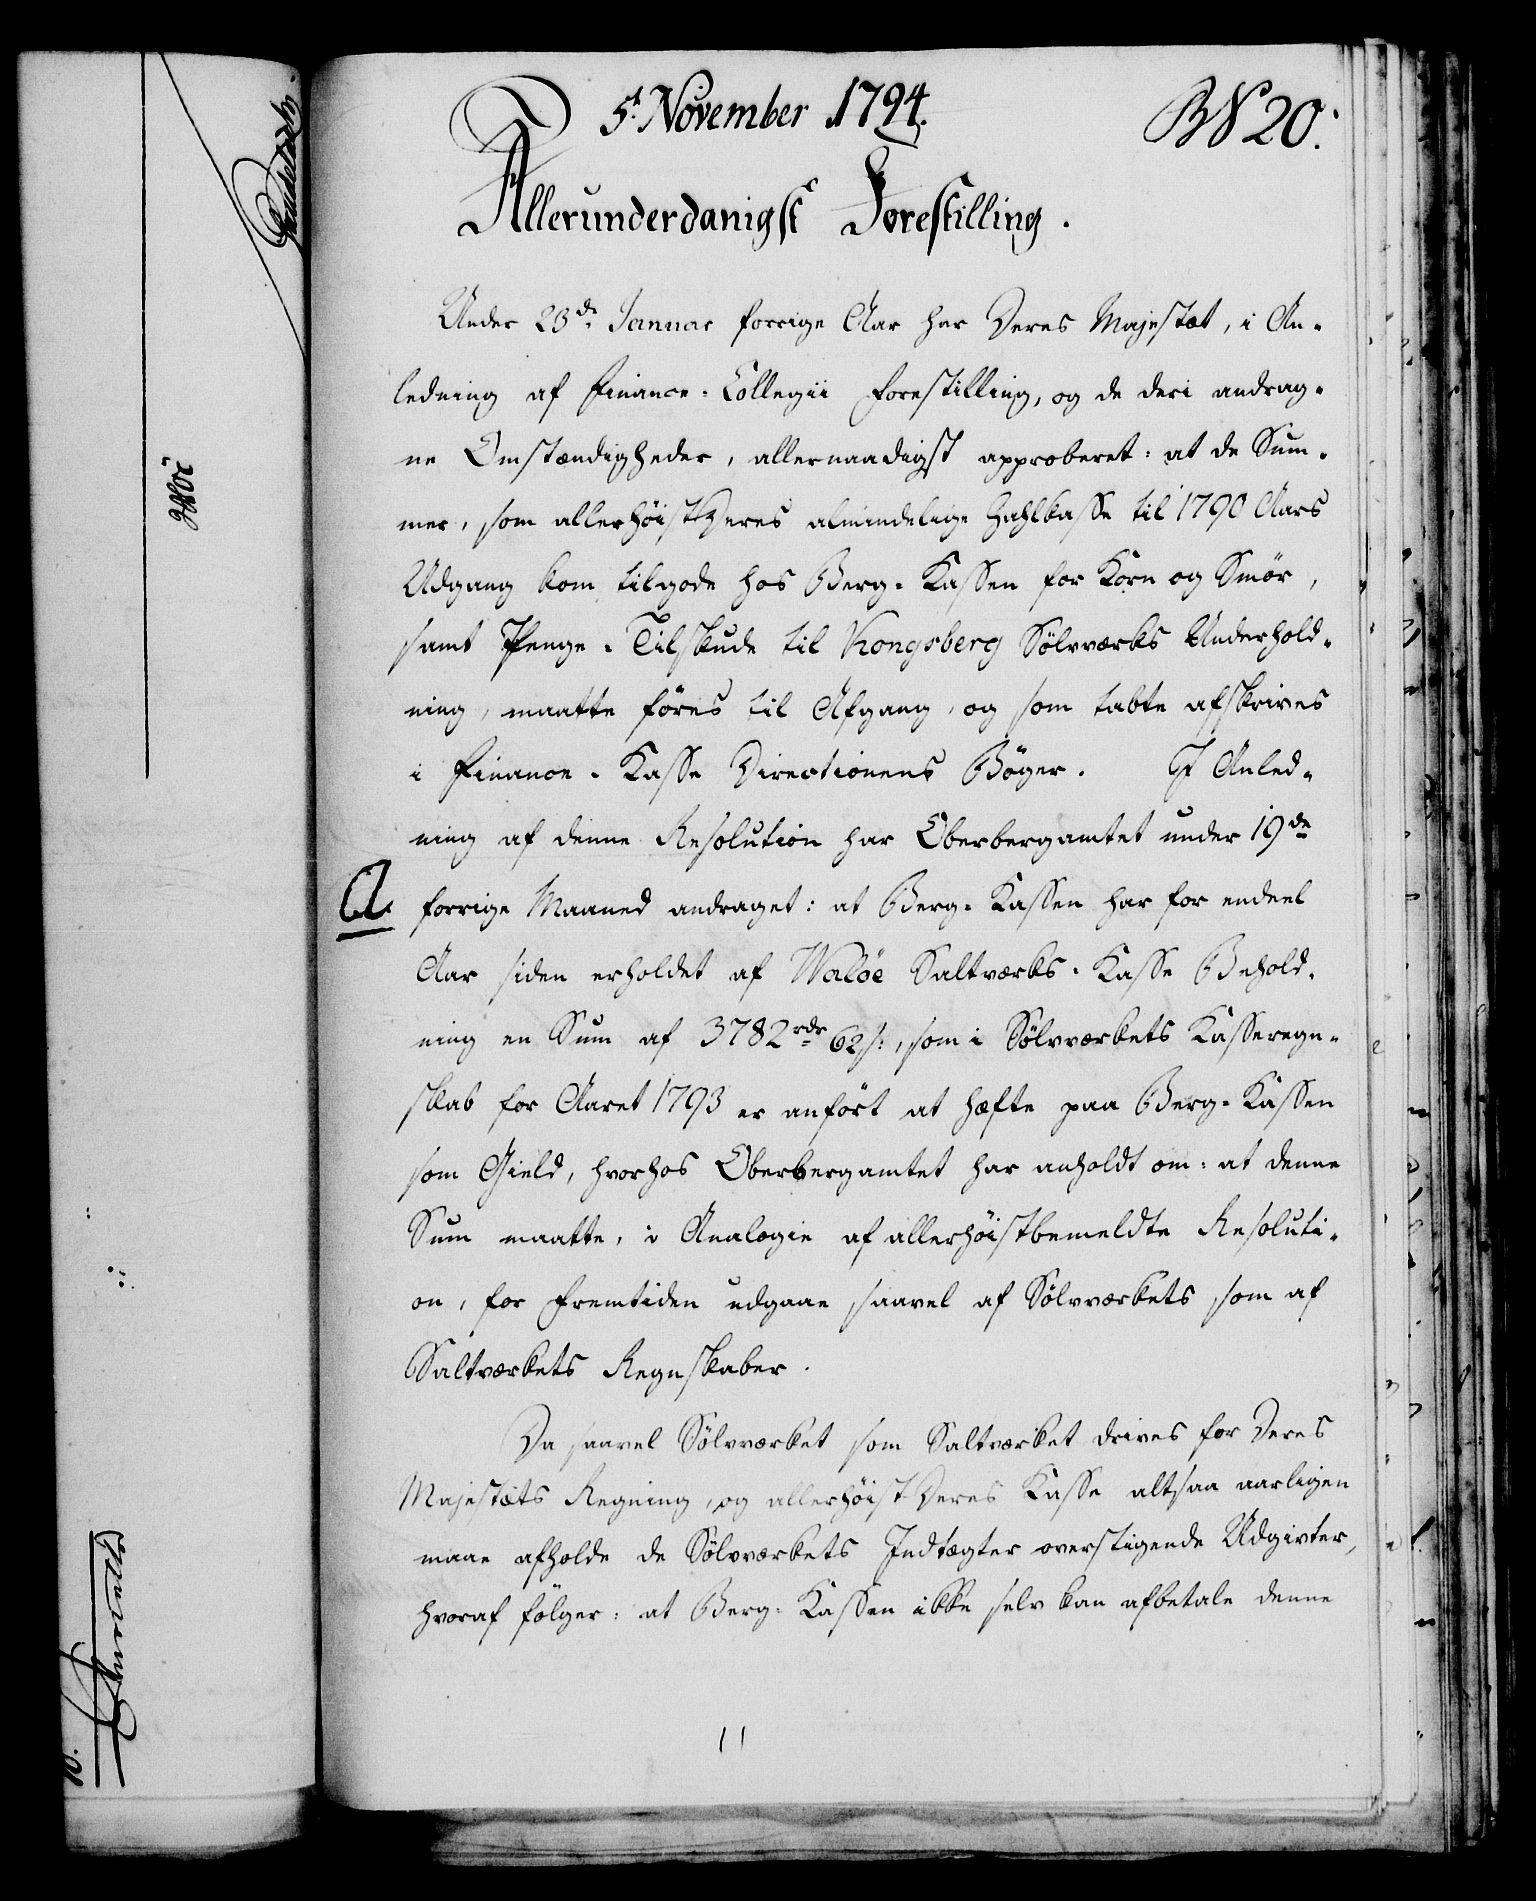 5t November 1794.
B№ 20.
Allerunderdanigst Forestilling.
Under 23de Januar forrige Aar har Deres Majestæt, i An-
ledning af Finance-Collegii Forestilling, og de deri andrag-
ne Omstændigheder, allernaadigst approberet: at de Sum-
mer, som allerhöistDeres almindelige Zahlkasse til 1790 Aars
Udgang kom tilgode hos Berg-Kassen for Korn og Smör,
samt Penge-Tilskude til Kongsberg Sölvværks Underhold-
ning, maatte föres til Afgang, og som tabte afskrives
i Finance-Kasse Directionens Böger. I Anled-
ning af denne Resolution har Oberbergamtet under 19de
A.
forrige Maaned andraget: at Berg-Kassen har for endeel
Aar siden erholdet af Waløe Saltværks-Kasse Behold-
ning en Sum af 3782 rdr 62 s:, som i Sölvværkets Kasseregn-
skab for Aaret 1793 er anfört at hæfte paa Berg-Kassen
som Gield, hvorhos Oberbergamtet har anholdt om: at denne
Sum maatte, i Analogie af allerhöistbemeldte Resoluti-
on, for Fremtiden udgaae saavel af Sölvværkets som af
Saltværkets Regnskaber.
Da saavel Sölvværket som Saltværket drives for Deres
Majestæts Regning, og allerhöistDeres Kasse altsaa aarligen
maae afholde de Sölvværkets Indtægter overstigende Udgivter,
hvoraf fölger: at Berg-Kassen ikke selv kan afbetale denne